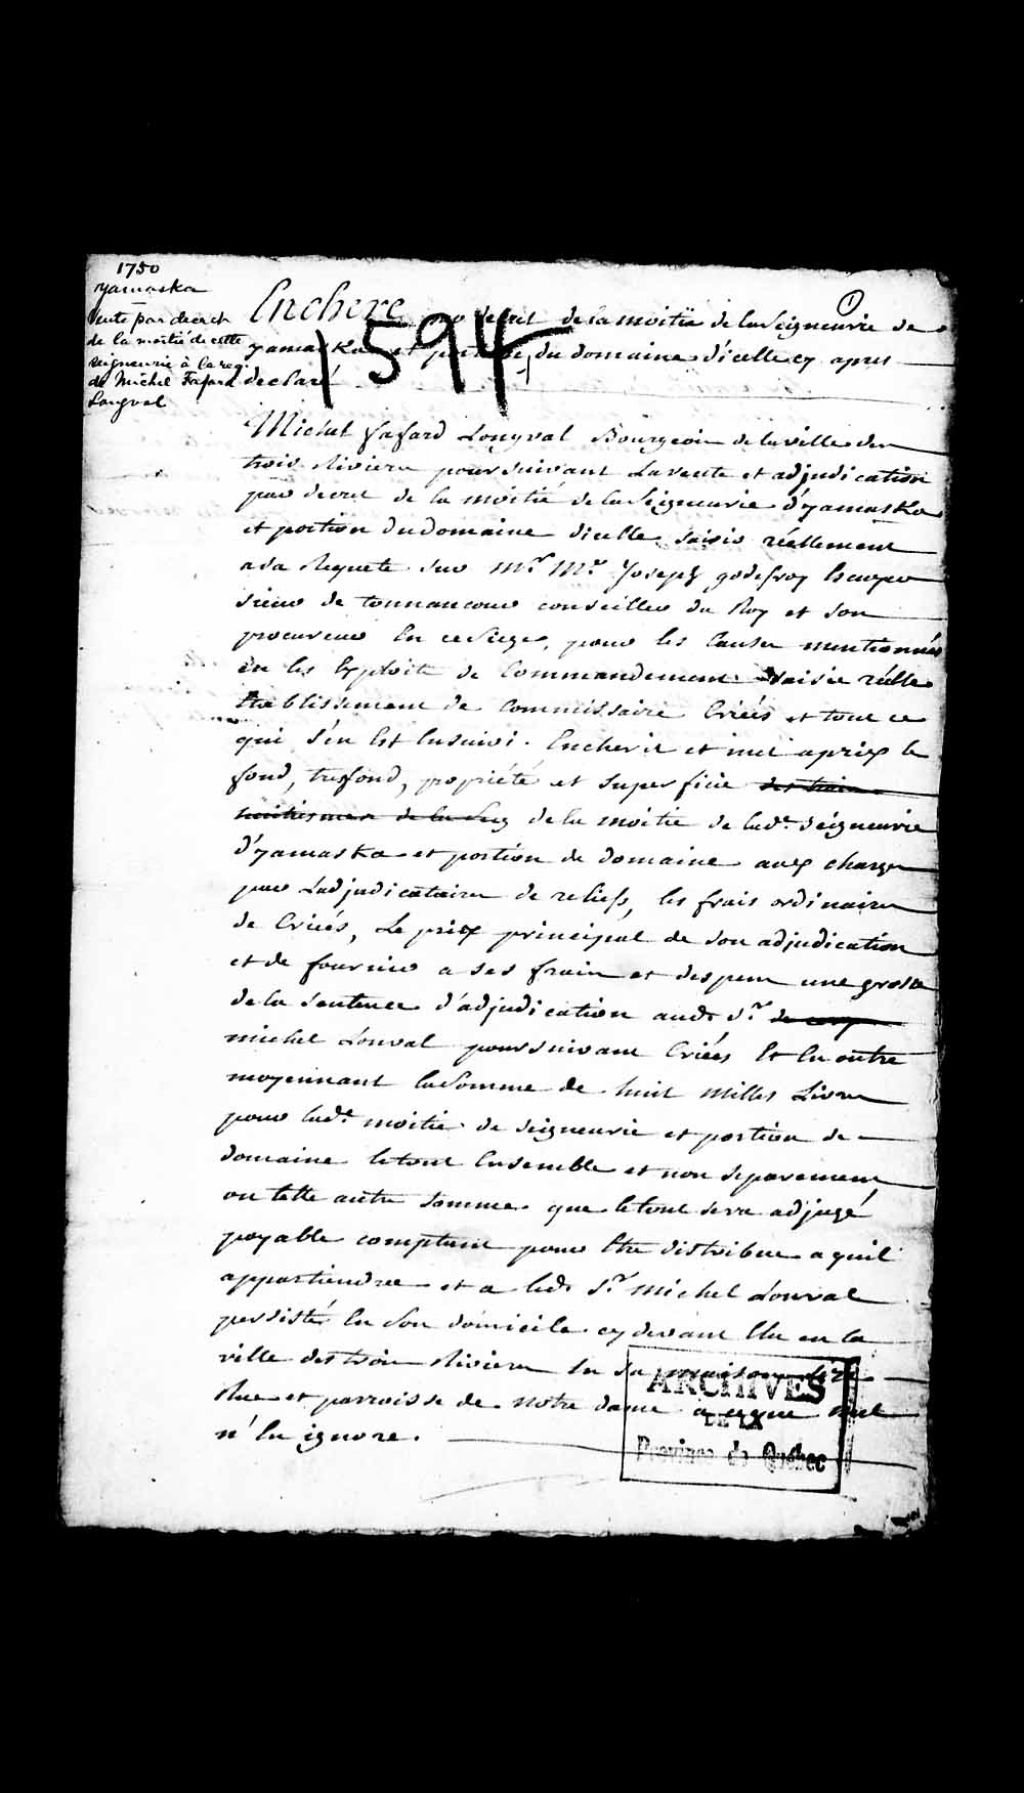 1750
yamaska
vente par decret
de la moitié de cette
seigneurie à la req.
de Michel Fafard
Longval
1
Enchere par decret de la moitié de la Seigneurie de
yamaska et portion du domaine d'icelle cy apres
declaré
1594
Michel fafard Longval Bourgeois de la ville des
trois Rivieres poursuivant La vente et adjudication
par decret de la moitié de la Seigneurie d'yamaska
et portion du domaine dicelle saisis réellement
a sa Requete sur Mr. Mr. Joseph godefroy Ecuyer
sieur de tonnancour conseiller du Roy et son
procureur En ce Siege, pour les Causes mentionnés
en les Exploits de Commandement Saisie réelle
Etablissement de Commissaire Criées et tout ce
qui s'en Est Ensuivi. Encherie et met a prix le
fond, tresfond, proprieté et superficie
de la moitié de lade. Seigneurie
d'yamaska et portion de domaine aux charges
par Ladjudicataire de reliefs, les frais ordinaires
de Criées, Le prix principal de son adjudication
et de fournir a ses frais et despens une grosse
de la Sentence d'adjudication aud. Sr.
michel Lonval poursuivant Criées Et En outre
moyennant la Somme de huit Milles Livres
pour lade. moitié de seigneurie et portion de
domaine le tout Ensemble et non separement
ou telle autre Somme que le tout sera adjugé
payable comptant pour Etre distribue a quil
appartiendra et a led. Sr. Michel Lonval
persisté En Son domicile cy devant Elu en la
ville des trois Rivieres En Sa maison size
Rue et parroisse de Notre dame a ce que nul
n'En ignore.
ARCHIVES
DE LA
Province de Québec